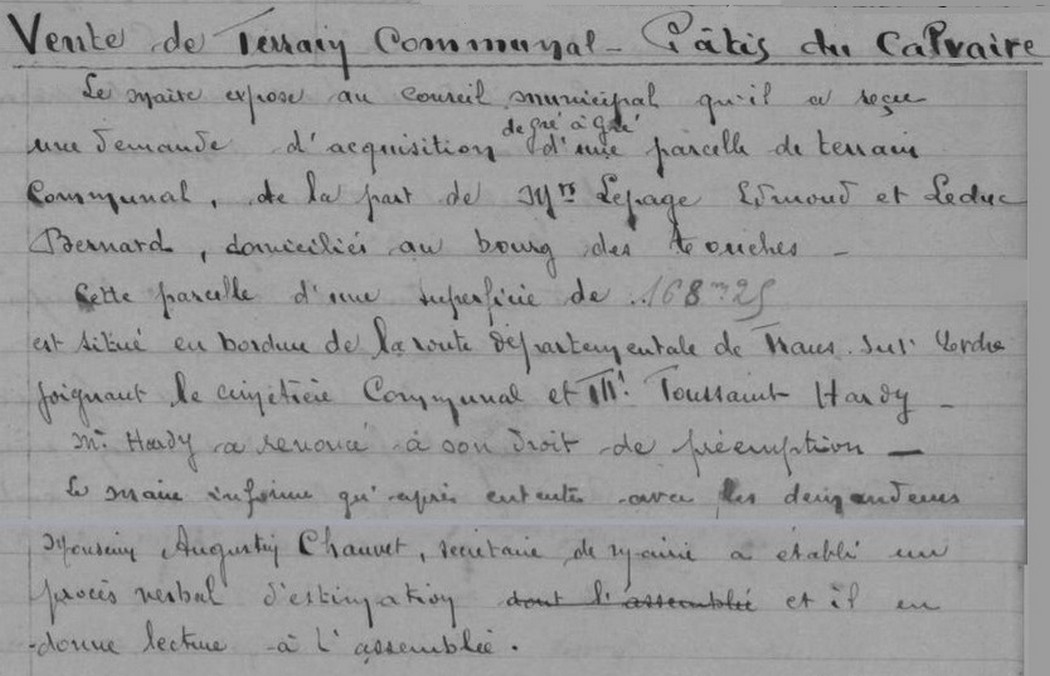 Vente de Terrain Communal - Pâtis du Calvaire
Le Maire expose au Conseil municipal qu'il a reçu
de gré à gré
une demande d'acquisition d'une parcelle de terrain
Communal, de la part de Mrs Lepage Edmond et Leduc
Bernard, domiciliés au bourg des Touches -
Cette parcelle d'une superficie de 168m25
est situé en bordure de la route départementale de Trans sur Erdre
joignant le cimétière Communal et Mr Toussaint Hardy -
Mr Hardy a renoncé à son droit de préemption -
Le Maire informe qu'après entente avec les demandeurs
Monsieur Augustin Chauvet, secrétaire de mairie a établi un
procès verbal d'estimation dont l'assemblée et il en
donne lecture à l'assemblée.